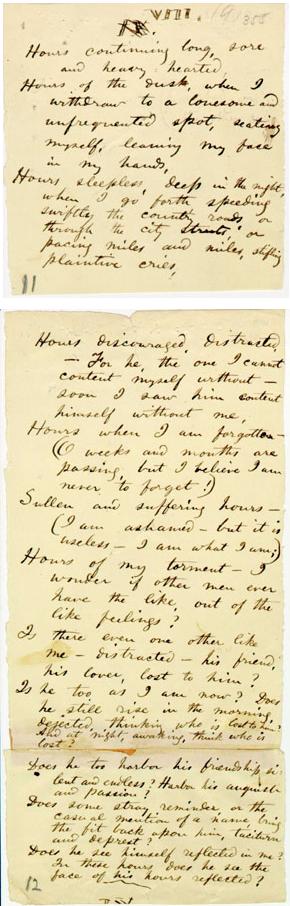 VIII.
(9)
355
IX.
Hours continuing long, sore
and heavy hearted
Hours of the dusk, when I
withdraw to a lonesome and
unfrequented spot, seating
myself, leaning my face
in my hands,
Hours sleepless, deep in the night,
when I go forth speeding
swiftly the country roads, or
through the city streets, or
pacing miles and miles, stifling
plaintive cries,
11
Hours discouraged, distracted,
— For he, the one I cannot
content myself without —
soon I saw him content
himself without me,
Hours when I am forgotten —
(O weeks and months are
passing, but I believe I am
never to forget!)
Sullen and suffering hours —
(I am ashamed — but it is
useless — I am what I am;)
Hours of my torment — I
wonder if other men ever
have the like, out of the
like feelings?
Is there even one other like
me — distracted — his friend,
his lover, lost to him?
Is he too as I am now? Does
he still rise in the morning,
dejected, thinking who is lost to him?
And at night, awaking, think who is
lost?
Does he too harbor his friendship si-
lent and endless? Harbor his anguish
and passion?
Does some stray reminder, or the
casual mention of a name, bring
the fit back upon him, taciturn
and deprest?
Does he see himself reflected in me?
In these hours does he see the
face of his hours reflected?
12